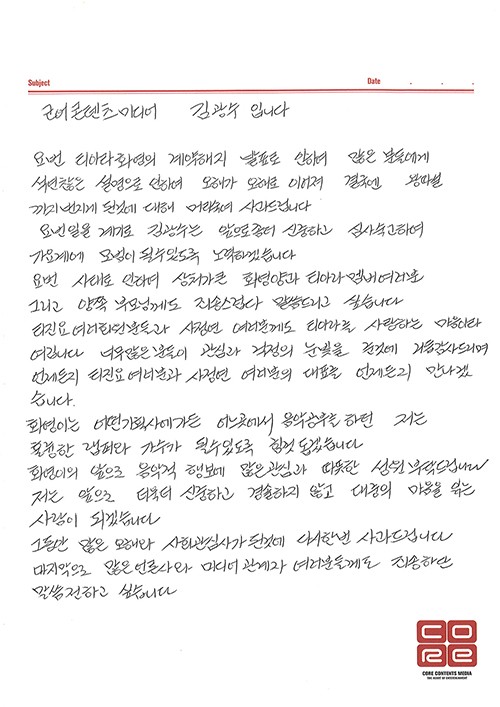 Subject
Date . . .
코어콘텐츠미디어 김광수 입니다
요번 티아라 화영의 계약해지 발표로 인하여 많은 분들에게
석연찮은 설명으로 인하여 오해가 오해로 이어져 결국엔 왕따설
까지 번지게 된것에 대해 머리숙여 사과드립니다
요번일을 계기로 김광수는 앞으로 좀더 신중하고 심사숙고하여
가요계에 모범이 될수있도록 노력하겠습니다
요번 사태로 인하여 상처가큰 화영양과 티아라 멤버 여러분
그리고 양쪽 부모님께도 죄송스럽다 말씀드리고 싶습니다
티진요 여러회원분들과 사정연 여러분께도 티아라를 사랑하는 마음이라
여깁니다 너무많은분들이 관심과 걱정의 눈빛을 준것에 거듭감사드리며
언제든지 티진요 여러분과 사정연 여러분의 대표를 언제든지 만나겠
습니다.
화영이는 어떤기획사에가든 어느곳에서 음악공부를 하던 저는
훌륭한 랩퍼와 가수가 될수있도록 힘껏 돕겠습니다
화영이의 앞으로 음악적 행보에 많은관심과 따뜻한 성원 부탁드립니다
저는 앞으로 더욱더 신중하고 경솔하지 않고 대중의 마음을 읽는
사람이 되겠습니다
그동안 많은 오해와 사회관심사가 된것에 다시한번 사과드립니다
마지막으로 많은언론사와 미디어 관계자 여러분들께도 죄송하단
말씀전하고 싶습니다
CORE
CORE CONTENTS MEDIA